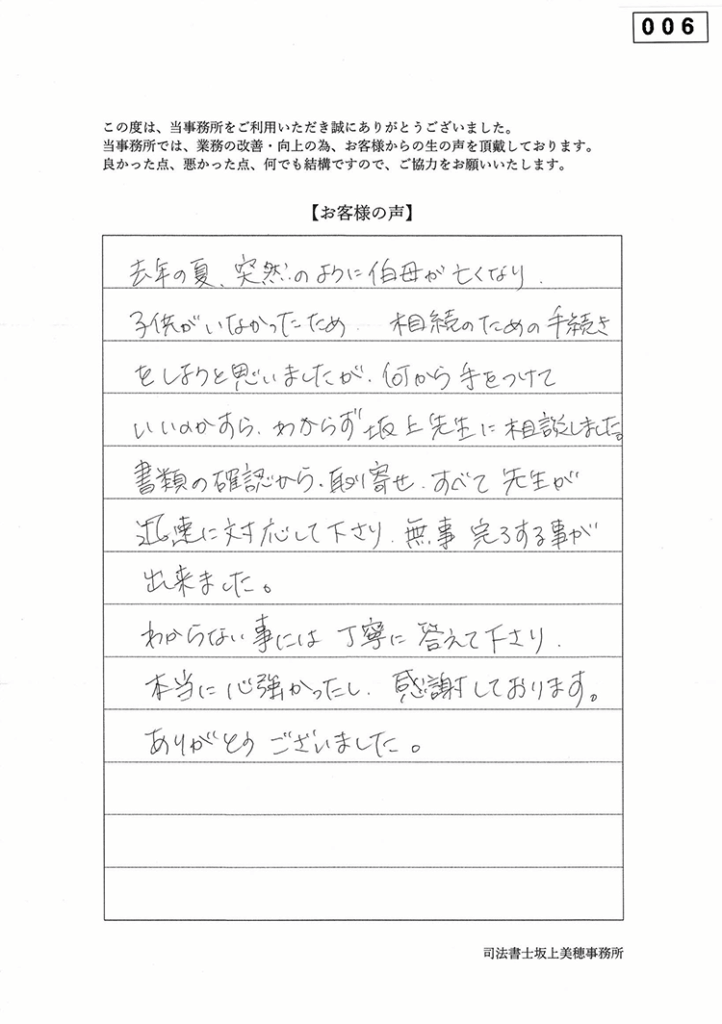 006
この度は、当事務所をご利用いただき誠にありがとうございました。
当事務所では、業務の改善・向上の為、お客様からの生の声を頂戴しております。
良かった点、悪かった点、何でも結構ですので、ご協力をお願いいたします。
【お客様の声】
去年の夏、突然のように伯母が亡くなり、
子供がいなかったため 相続のための手続き
をしようと思いましたが、何から手をつけて
いいのかすら、わからず坂上先生に相談しました。
書類の確認から、取り寄せ、すべて先生が
迅速に対応して下さり、無事完了する事が
出来ました。
わからない事には丁寧に答えて下さり、
本当に心強かったし、感謝しております。
ありがとうございました。
司法書士坂上美穂事務所